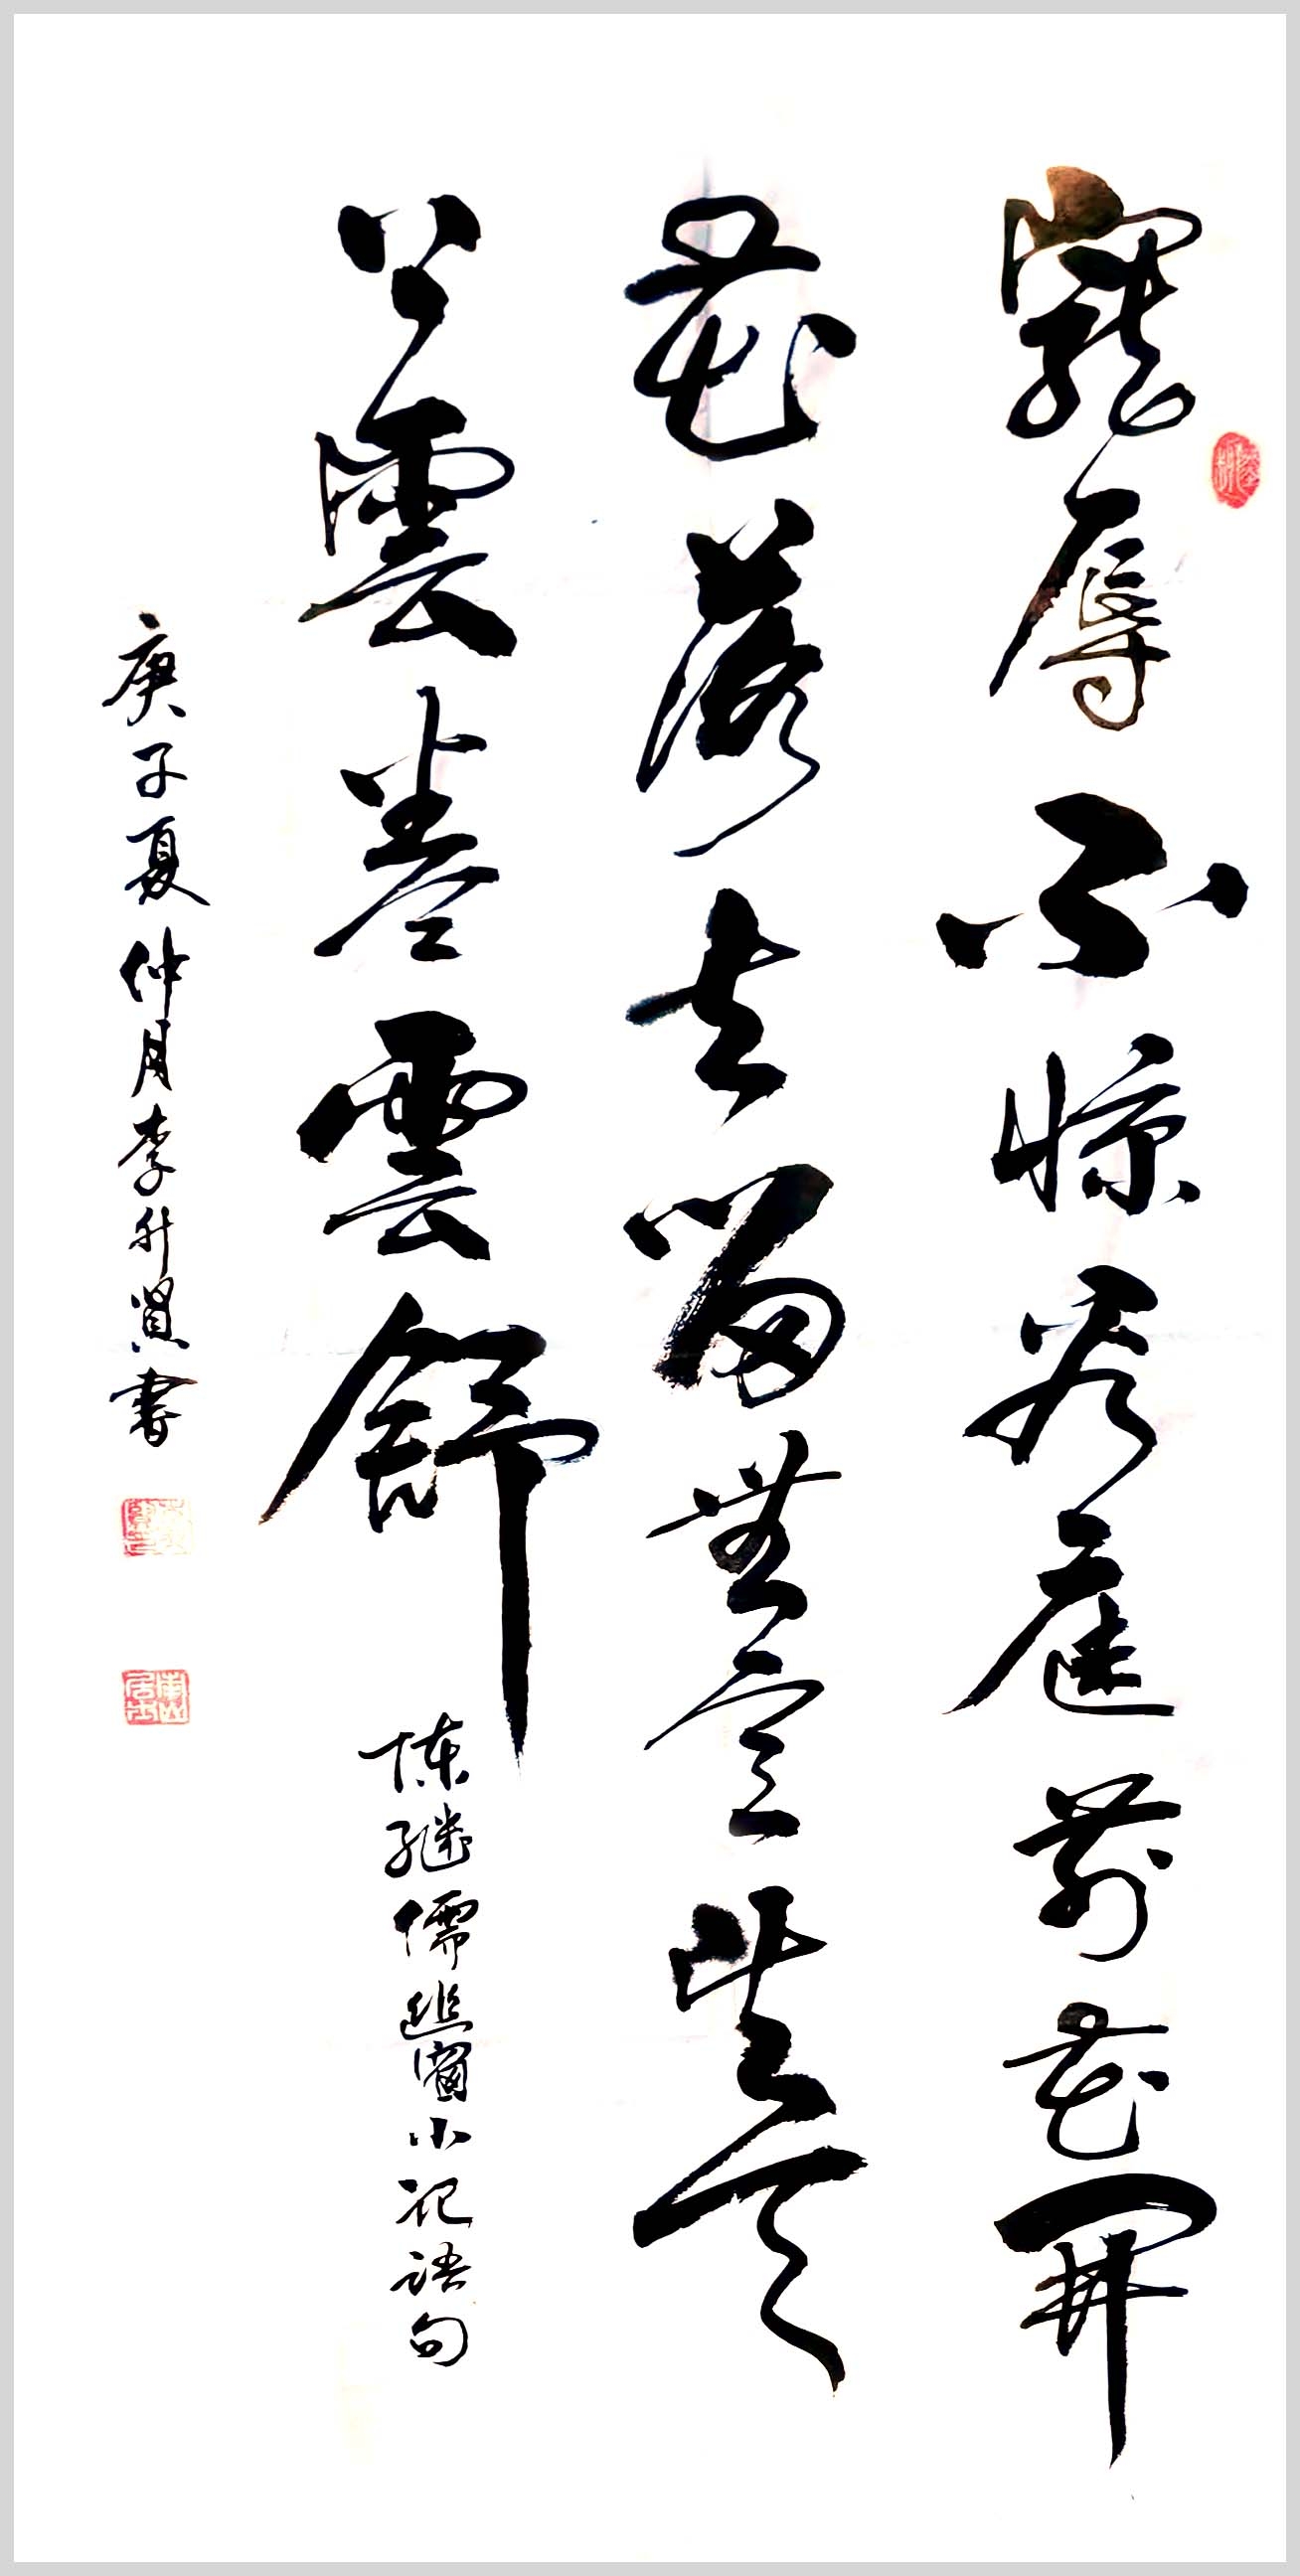 寵辱不惊看庭前花開
花落去留無意望天
上雲卷雲舒
陈继儒幽窗小记语句
庚子夏仲月李升賢書